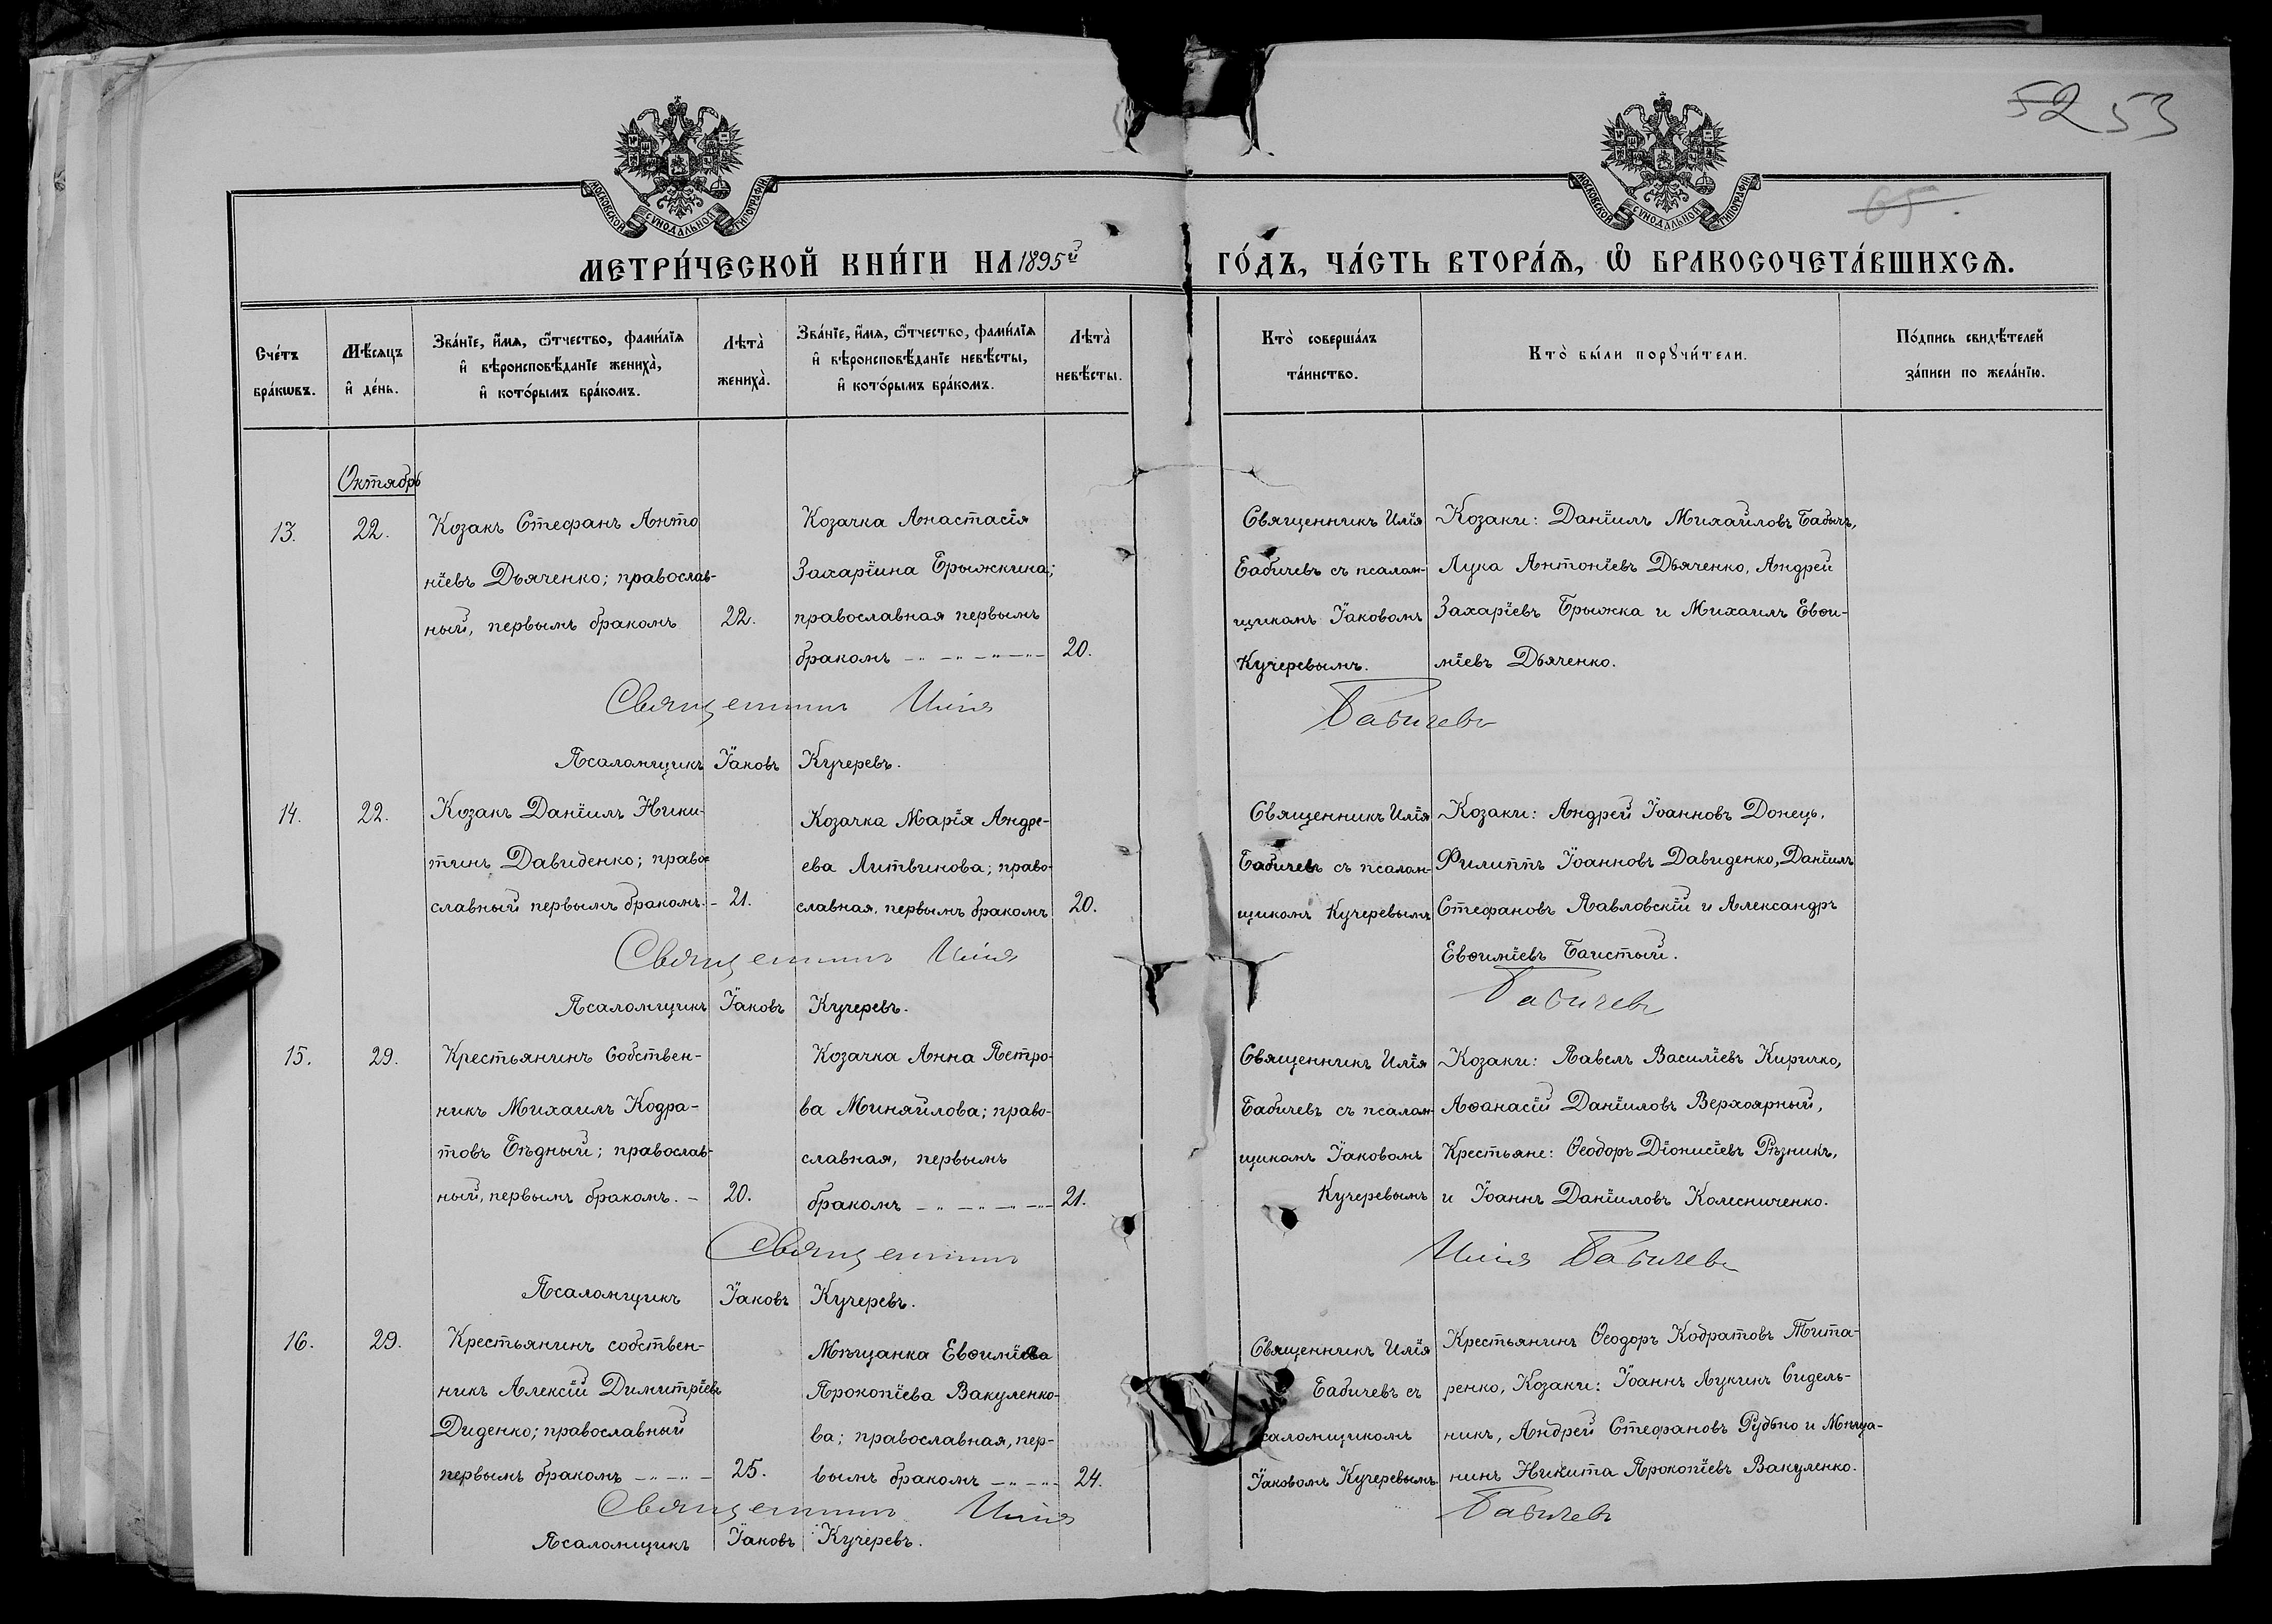 52 53
65.
МОСКОВСКОЙ СѴНОДАЛЬНОЙ ТИПОГРАФІИ
МОСКОВСКОЙ СѴНОДАЛЬНОЙ ТИПОГРАФІИ
МЕТРИ́ЧЕСКОЙ КНИ́ГИ НА 1895й ГО́ДЪ, ЧА́СТЬ ВТОРА́Ѧ, Ѡ БРАКОСОЧЕТА́ВШИХСѦ.
Сче́тъ
бра́кѡвъ.
Мѣ́сѧцъ
и҆ де́нь.
Зва́нїе, и҆́мѧ, ѻ҆́тчество, фами́лїѧ
и҆ вѣроисповѣ́данїе жениха̀,
и҆ кото́рымъ бра́комъ.
Лѣта̀
жениха̀.
Зва́нїе, и҆́мѧ, ѻ҆́тчество, фами́лїѧ
и҆ вѣроисповѣ́данїе невѣ́сты,
и҆ кото́рымъ бра́комъ.
Лѣта̀
невѣ́сты.
Кто̀ соверша́лъ
та́инство.
Кто̀ бы́ли порꙋчи́тели.
По́дпись свидѣ́телей
за́писи по жела́нїю.
Октябрь
13.
22.
Козакъ Стефанъ Анто
ніевъ Дьяченко; православ-
ный, первымъ бракомъ
22.
Козачка Анастасія
Захаріина Брыжкина;
православная первымъ
бракомъ
20.
Священникъ Илія
Бабичевъ съ псалом-
щикомъ Іаковомъ
Кучеревымъ.
Козаки: Даніилъ Михаиловъ Бабичъ,
Лука Антоніевъ Дьяченко, Андрей
Захаріевъ Брыжка и Михаилъ Евѳи-
міевъ Дьяченко.
Священникъ Илія Бабичевъ
Псаломщикъ Іаковъ Кучеревъ.
14.
22.
Козакъ Даніилъ Ники-
тинъ Давиденко; право-
славный первымъ бракомъ. -
21.
Козачка Марія Андре-
ева Литвинова; право-
славная, первымъ бракомъ
20.
Священникъ Илія
Бабичевъ съ псалом-
щикомъ Кучеревымъ
Козаки: Андрей Іоанновъ Донецъ,
Филиппъ Іоанновъ Давиденко, Даніилъ
Стефановъ Павловскій и Александръ
Евѳиміевъ Баистый.
Священникъ Илія Бабичевъ
Псаломщикъ Іаковъ Кучеревъ.
15.
29.
Крестьянинъ Собствен-
никъ Михаилъ Кодра-
товъ Бѣдный; православ-
ный, первымъ бракомъ. -
20.
Козачка Анна Петро-
ва Миняйлова; право-
славная, первымъ
бракомъ
21.
Священникъ Илія
Бабичевъ съ псалом-
щикомъ Іаковомъ
Кучеревымъ
Козаки: Павелъ Василіевъ Киричко,
Аѳанасій Даніиловъ Верхоярный,
Крестьяне: Ѳеодоръ Діонисіевъ Рѣзникъ,
и Іоаннъ Даніиловъ Колесниченко.
Священникъ Илія Бабичевъ
Псаломщикъ Іаковъ Кучеревъ.
16.
29.
Крестьянинъ собствен-
никъ Алексій Димитріевъ
Диденко; православный
первымъ бракомъ
25.
Мѣщанка Евѳимія
Прокопіева Вакуленко-
ва; православная, пер-
вымъ бракомъ
24.
Священникъ Илія
Бабичевъ съ
саломщикомъ
Іаковомъ Кучеревымъ
Крестьянинъ Ѳеодоръ Кодратовъ Тита-
ренко, Козаки: Іоаннъ Лукинъ Сидель-
никъ, Андрей Стефановъ Рудько и Мѣща-
нинъ Никита Прокопіевъ Вакуленко.
Священникъ Илія Бабичевъ
Псаломщикъ Іаковъ Кучеревъ.